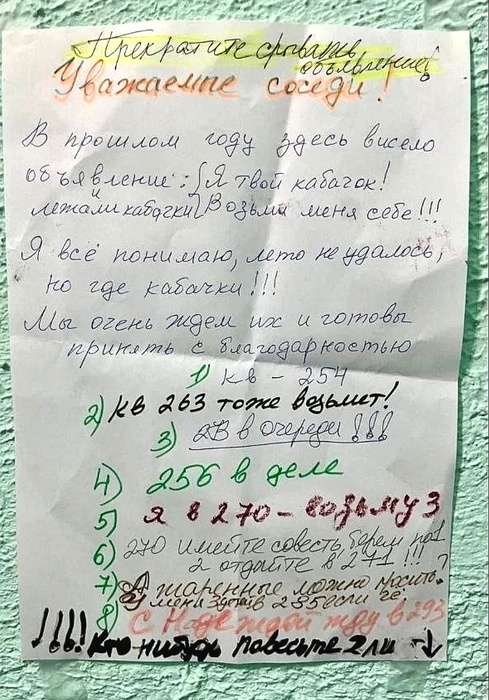 Прекратите срывать
объявление!
Уважаемые соседи!
В прошлом году здесь висело
объявление: Я твой кабачок!
и лежали кабачки Возьми меня себе!!!
Я всё понимаю, лето не удалось,
но где кабачки!!!
Мы очень ждем их и готовы
принять с благодарностью
1) кв - 254
2) кв 263 тоже возьмет!
3) 2В в очереди!!!
4) 256 в деле
5) Я в 270 - возьму 3
6) 270 имейте совесть, берем по 1
2 отдайте в 271!!!
7) А жаренные можно носить?
У меня в 285 если чё.
8) С Надеждой жду в 293
!!!! Кто нибудь повесьте 2 ли ↓